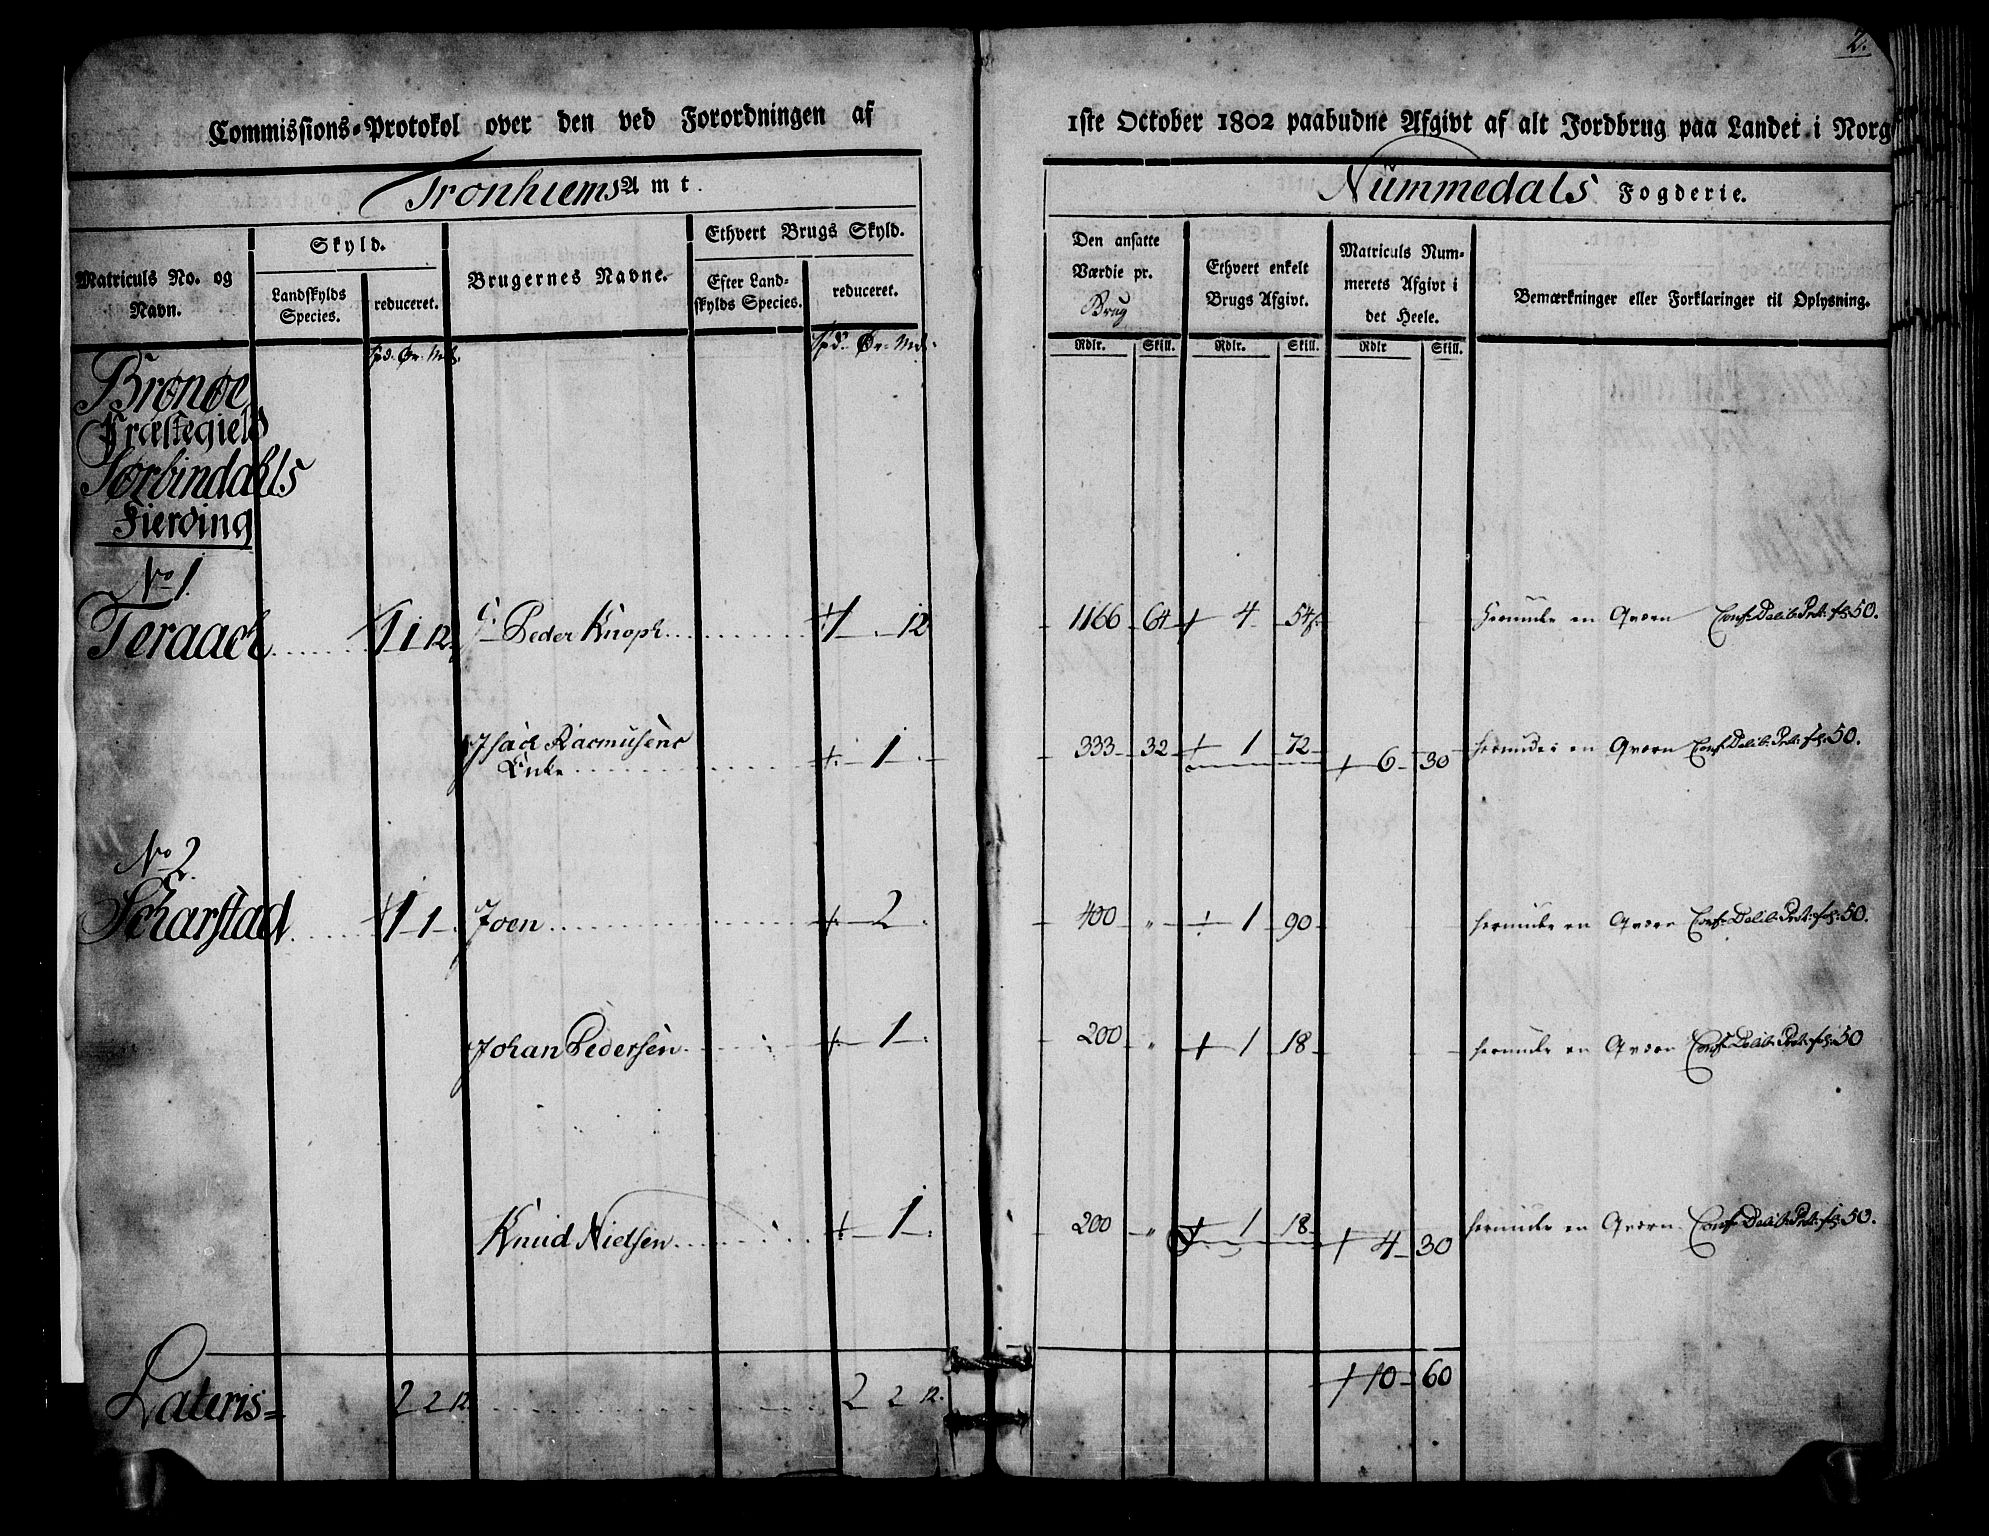 2.
Commissions-Protokol over den ved Forordningen af 1ste October 1802 paabudne Afgivt af alt Jordbrug paa Landet i Norg
Tronhiems Amt.
Nummedals Fogderie.
Matriculs No. og Navn.
Skyld.
Landskylds Species.
reduceret.
Brugernes Navne.
Ethvert Brugs Skyld.
Efter Landskylds Species.
reduceret.
Den ansatte Værdie pr. Brug
Ethvert enkelt Brugs Afgivt.
Matriculs Nummerets Afgivt i det Heele.
Bemærkninger eller Forklaringer til Oplysning.
Spd. Ør. Mk.
Spd. Ør. Mk.
Rdlr. Skill. Rdlr. Skill. Rdlr Skill.
Brønøe
Præstegield
Sørbindahls
Fierding
No 1.
Teraack 1 1 12. Peder Knoph 1 12 1166 64 4 54 herunder en Qværn Conf. Delib. Prot. fol. 50.
Isach Rasmusens
Enke 1 333 32 1 72 6 30 herunder en Qværn Conf. Delib. Prot. fol. 50.
No 2.
Scharstad 1 1 Joen 2 400 " 1 90 herunder en Qværn Conf. Delib. Prot. fol. 50.
Johan Pedersen 1 200 " 1 18 herunder en Qværn Conf. Delib. Prot. fol. 50
Knud Nielsen 1 200 " 1 18 4 30 herunder en Qværn. Conf. Delib. Prot. fol. 50.
Lateris = 2 2 12 2 2 12. 10 60